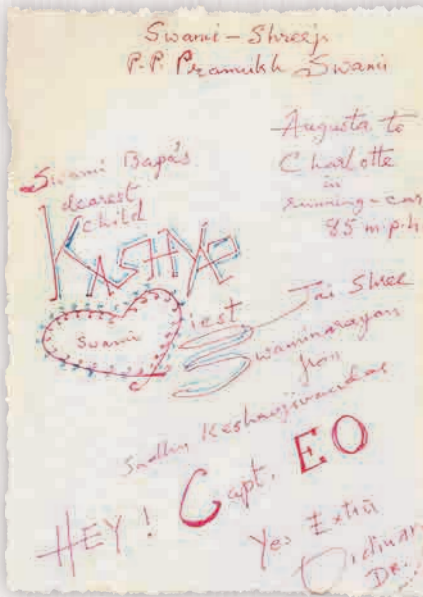 Swami-Shreeji
P.P. Pramukh Swami
Augusta to
Charlotte
in
running-car
85 m.p.h.
Swami Bapa's
dearest
child
KASHYAP
Swami
iest
Jai Shree
Swaminarayan
from
Sadhu Keshavjivandas
HEY! Capt. EO
Yes Extra
Ordinary
Dr.